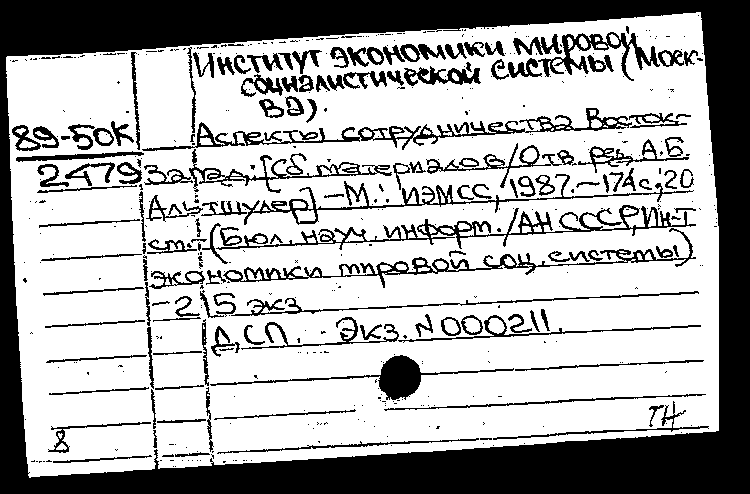 Институт экономики мировой
социалистической системы (Моск-
ва).
89-50К Аспекты сотрудничества Восток-
2479 Запад: [Сб. материалов / Отв. ред. А.Б.
Альтшулер] — М.: ИЭМСС, 1987. — 174 с.; 20
см. — (Бюл. науч. информ. / АН СССР, Ин-т
экономики мировой соц. системы)
— 215 экз.
ДСП. - Экз. N 000211.
8 ТН